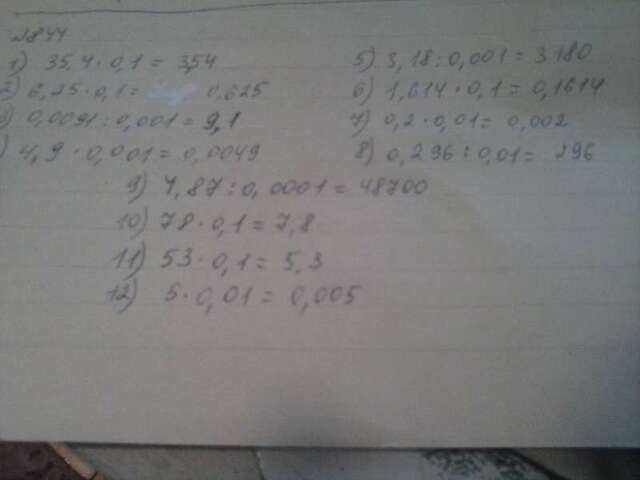 №844
1) 35,4 · 0,1 = 3,54
2) 6,25 · 0,1 = 0,625
3) 0,0091 : 0,001 = 9,1
) 4,9 · 0,001 = 0,0049
5) 3,18 : 0,001 = 3180
6) 1,614 · 0,1 = 0,1614
7) 0,2 · 0,01 = 0,002
8) 0,296 : 0,01 = 296
9) 4,87 : 0,0001 = 48700
10) 78 · 0,1 = 7,8
11) 53 · 0,1 = 5,3
12) 5 · 0,01 = 0,005